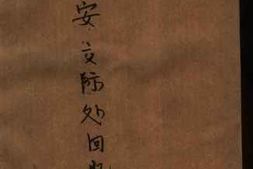 安交际处回